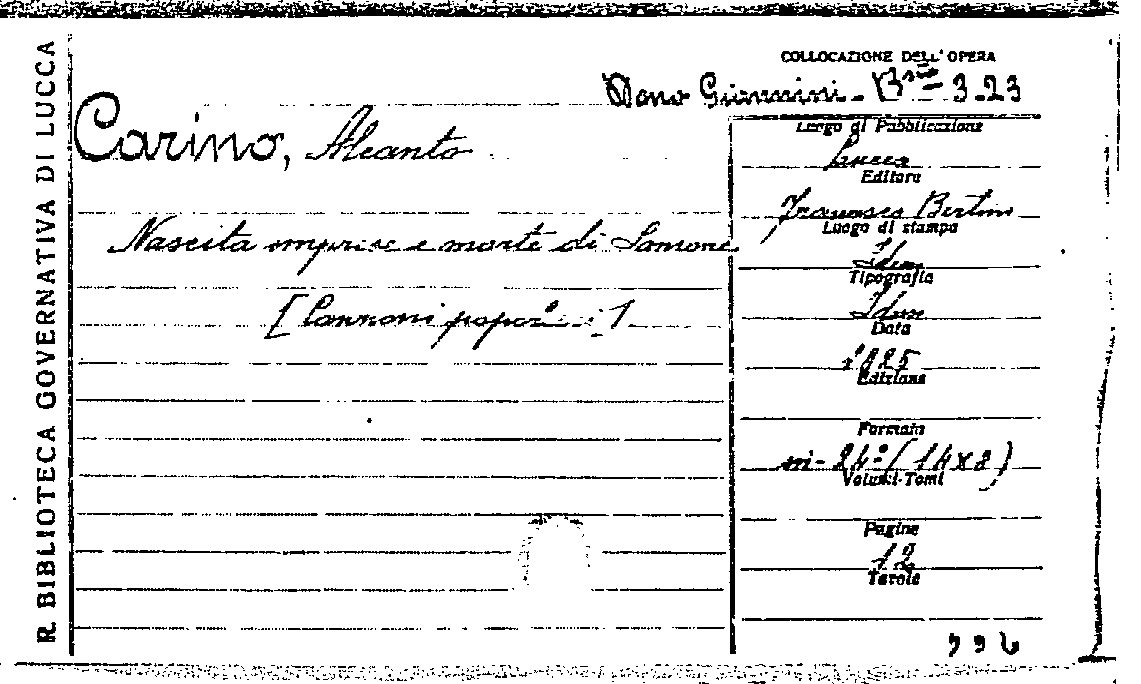 R. BIBLIOTECA GOVERNATIVA DI LUCCA
COLLOCAZIONE DELL'OPERA
Dono Giannini - 3-23
Carino, Alcanto
Nascita imprese e morte di Sansone
[Canzoni popor i]
Luogo di Pubblicazione
Lucca
Editore
Francesco Bertini
Luogo di stampa
Idem
Tipografia
Idem
Data
1825
Edizione
Formato
in-24º (14x8)
Volumi-Tomi
Pagine
12
Tavole